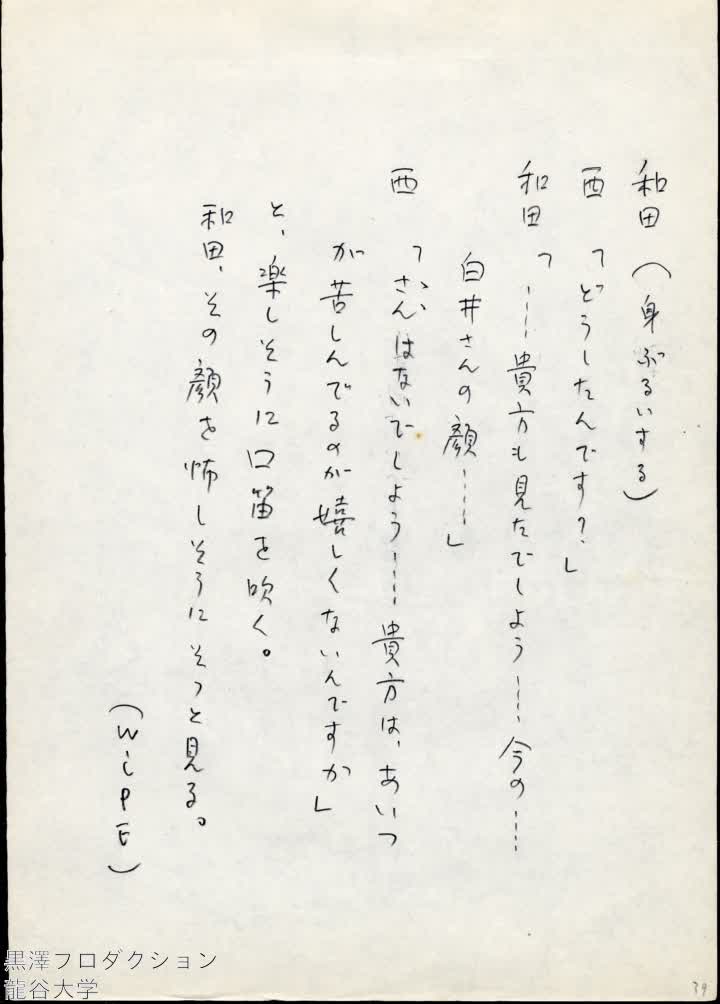 和田（身ぶるいする）
西　「どうしたんです？」
和田「……貴方も見たでしよう……今の……
白井さんの顔……」
西　「さん、はないでしよう……貴方は、あいつ
が苦しんでるのが嬉しくないんですか」
と、楽しそうに口笛を吹く。
和田、その顔を怖しそうにそっと見る。
（WiPE）
黒澤プロダクション
龍谷大学
39